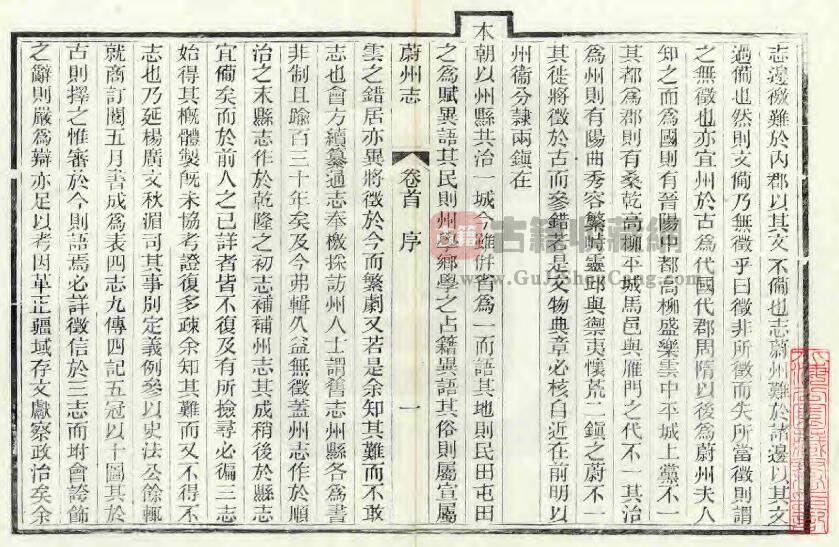 志邊徼難於內郡以其文不備也志蔚州難於諸邊以其文
過備也然則文備乃無徵乎曰徵非所徵而失所當徵則謂
之無徵也亦宜州於古爲代國代郡周隋以後爲蔚州夫人
知之而爲國則有晉陽中都高柳盛樂雲中平城上黨不一
其都爲郡則有桑乾高柳平城馬邑與雁門之代不一其治
爲州則有陽曲秀容繁畤靈邱與禦夷懷荒二鎭之蔚不一
其徙將徵於古而參錯若是文物典章必核自近在前明以
州衞分隷兩鎭在
本朝以州縣共治一城今雖併省爲一而語其地則民田屯田
之爲賦異語其民則州學鄉學之占籍異語其俗則屬宣屬
蔚州志
卷首 序
一
雲之錯居亦異將徵於今而繁劇又若是余知其難而不敢
志也會方續纂通志奉檄採訪州人士謂舊志州縣各爲書
非制且踰百三十年矣及今弗輯久益無徵蓋州志作於順
治之末縣志作於乾隆之初志補補州志其成稍後於縣志
宜備矣而於前人之已詳者皆不復及有所撿尋必徧三志
始得其槪體製旣未協考證復多疎余知其難而又不得不
志也乃延楊廣文秋湄司其事別定義例參以史法公餘輒
就商訂閱五月書成爲表四志九傳四記五冠以十圖其於
古則擇之惟審於今則語焉必詳徵信於三志而坿會誇飾
之辭則嚴爲辯亦足以考因革正疆域存文獻察政治矣余
古籍收藏網
www.GuJiShouCang.com